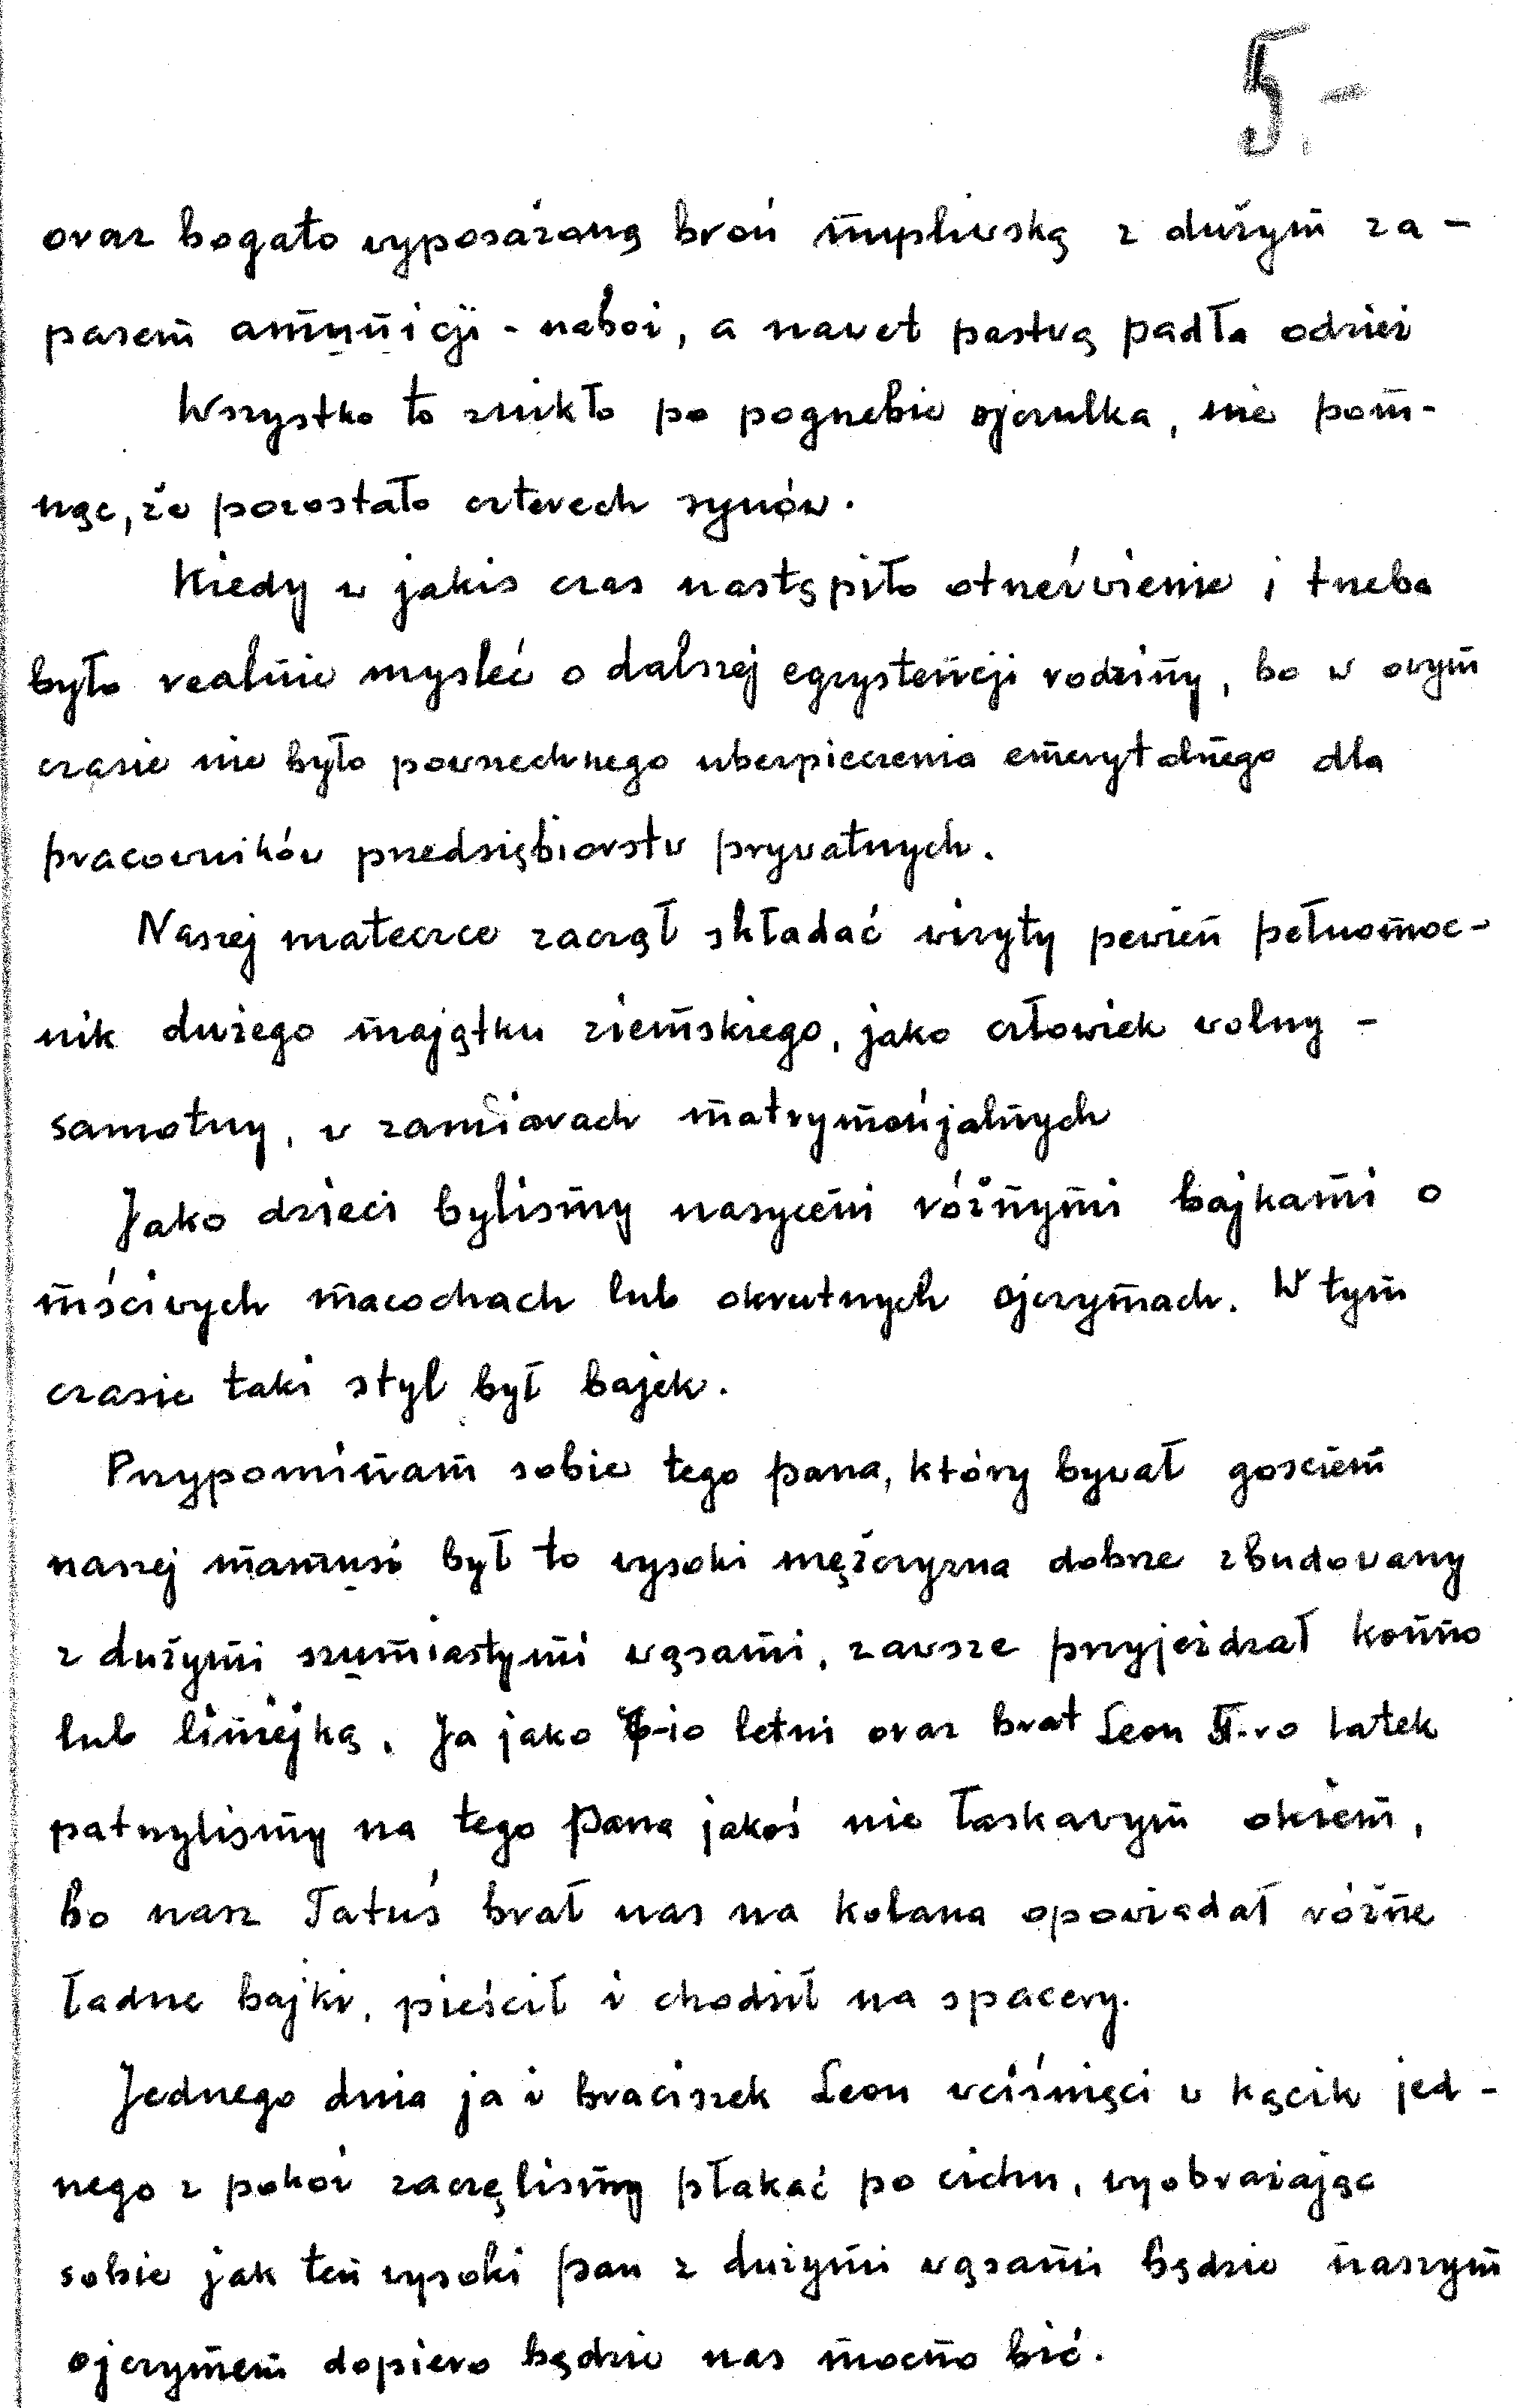 5.-
oraz bogato wyposażoną broń myśliwską z dużym za-
pasem amunicji - naboi, a nawet pastwą padła odzież
Wszystko to znikło po pogrzebie ojczulka, nie pom-
nąc, że pozostało czterech synów.
Kiedy w jakis czas nastąpiło otrzeźwienie i trzeba
było realnie mysleć o dalszej egzystencji rodziny, bo w owym
czasie nie było powszechnego ubezpieczenia emerytalnego dla
pracowników przedsiębiorstw prywatnych.
Naszej mateczce zaczął składać wizyty pewien pełnomoc-
nik dużego majątku ziemskiego, jako człowiek wolny -
samotny, w zamiarach matrymonjalnych
Jako dzieci bylismy nasyceni różnymi bajkami o
mściwych macochach lub okrutnych ojczymach. W tym
czasie taki styl był bajek.
Przypominam sobie tego pana, który bywał gosciem
naszej mamusi był to wysoki mężczyzna dobrze zbudowany
z dużymi szumiastymi wąsami, zawsze przyjeżdzał konno
lub linijką. Ja jako letni oraz brat Leon latek
patrzylismy na tego Pana jakoś nie łaskawym okiem,
bo nasz Tatuś brał nas na kolana opowiadał różne
ładne bajki, pieścił i chodził na spacery.
Jednego dnia ja i braciszek Leon wciśnięci w kącik jed-
nego z pokoi zaczęlismy płakać po cichu, wyobrażając
sobie jak ten wysoki pan z dużymi wąsami będzie naszym
ojczymem dopiero będzie nas mocno bić.